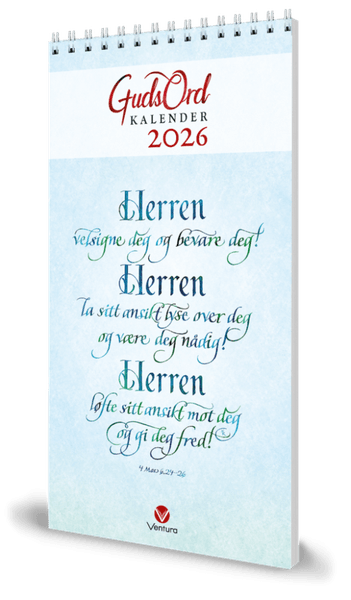 GudsOrd
KALENDER
2026
Herren
velsigne deg og bevare deg!
Herren
La sitt ansikt lyse over deg
og være deg nådig!
Herren
løfte sitt ansikt mot deg
og gi deg fred!
4 Mos 6.24-26
Ventura